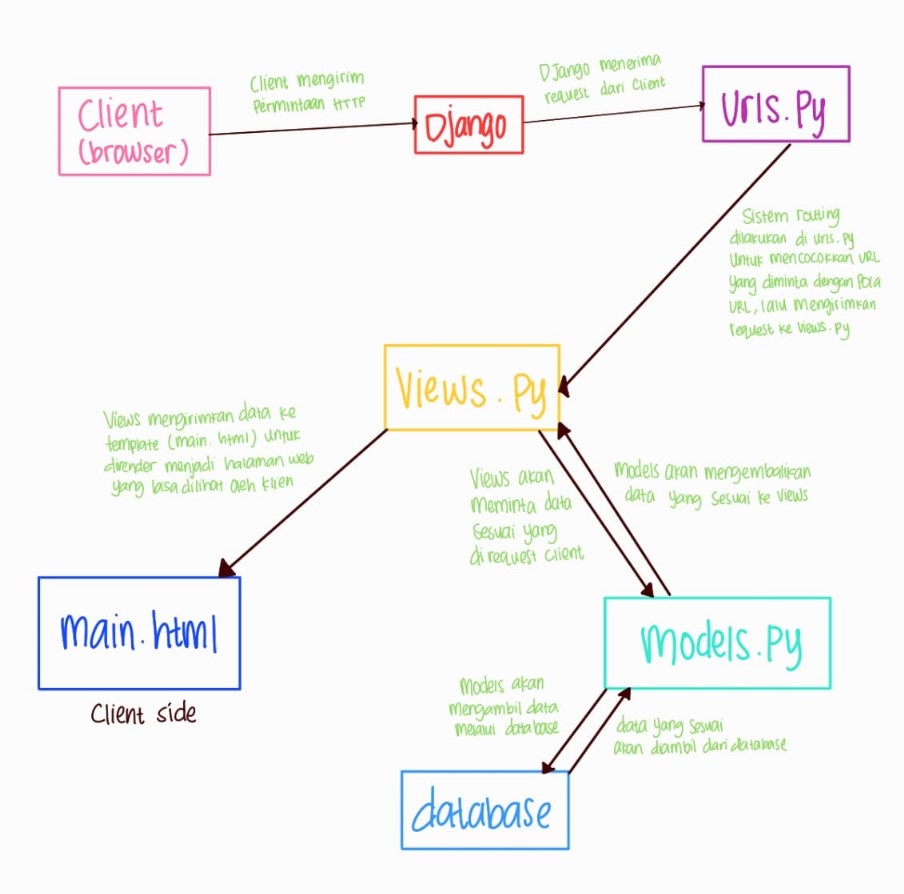 Client
(browser)
Client mengirim
Permintaan HTTP
Django
Django menerima
request dari Client
Urls.Py
Sistem routing
dilakukan di urls.py
Untuk mencocokkan URL
yang diminta dengan Pola
URL, lalu mengirimkan
request ke views.py
Views.Py
Views mengirimkan data ke
template (main.html) untuk
dirender menjadi halaman web
yang bisa dilihat oleh klien
Views akan
meminta data
sesuai yang
di request client
Models akan mengembalikan
data yang sesuai ke views
main.html
Client side
Models.Py
Models akan
mengambil data
melalui database
data yang sesuai
akan diambil dari database
database